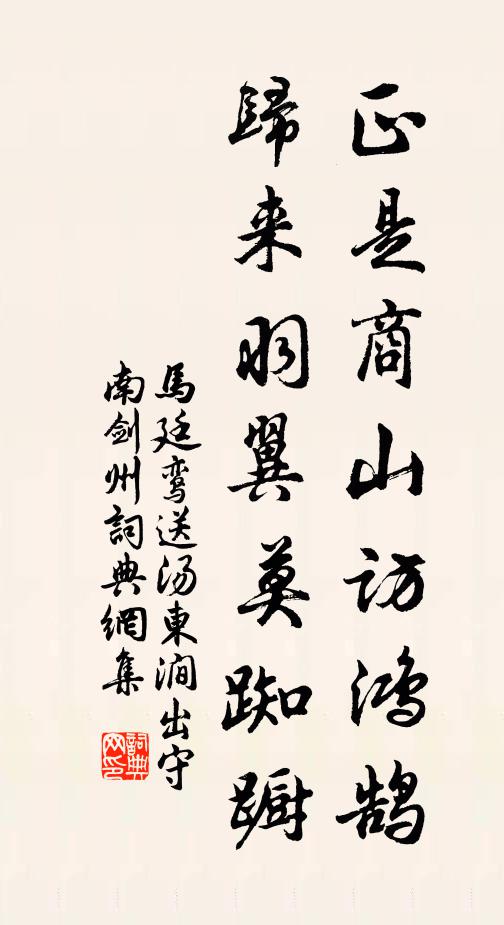 正是商山访鸿鹄
歸来羽翼莫踟蹰
馬廷鸾送汤東澗出守
南剑州詞典網集
詞典
网印